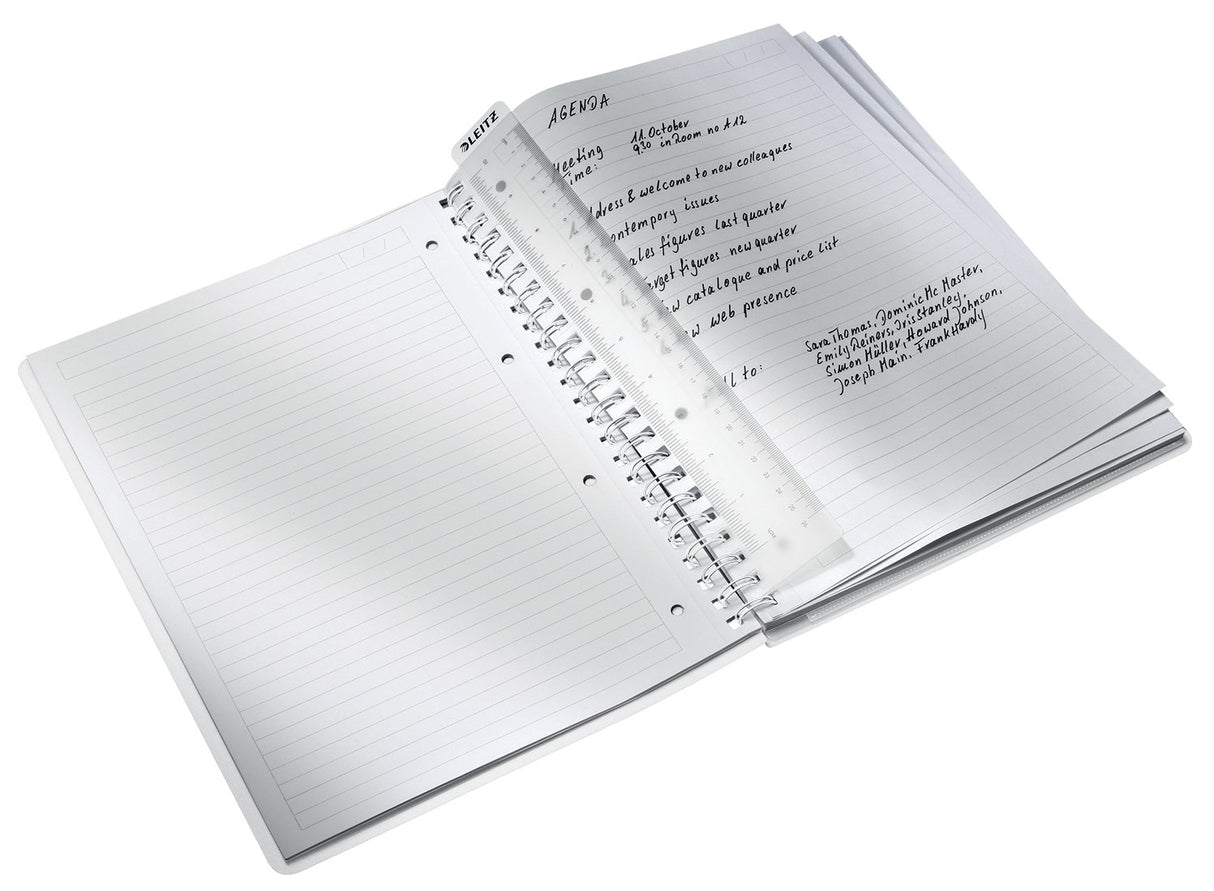 LEITZ
AGENDA
Meeting 11. October
Time: 9.30 in Room no A 12
ddress & welcome to new colleagues
ontempory issues
ales figures last quarter
arget figures new quarter
ew catalogue and price list
ew web presence
ll to: Sara Thomas, Dominic Mc Master,
Emily Reiners, Iris Stanley,
Simon Müller, Howard Johnson,
Joseph Main, Frank Hardy